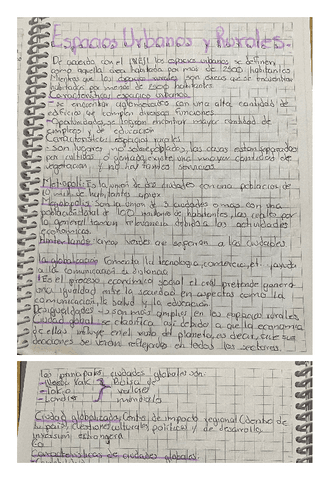 Espacios Urbanos y Rurales.
De acuerdo con el INEGI los espacios urbanos se definen
como aquella área habitada por más de 2500 habitantes
Mientras que los espacios rurales son áreas que se encuentran
habitadas por menos de 2500 habitantes.
Características espacios urbanos.
- se encuentran aglomerados con una alta cantidad de
edificios que cumplen diversas funciones.
- Oportunidades, se logran encontrar mayor cantidad de
empleos y de educación
Características espacios rurales
- son lugares no sobrepoblados, las casas están separadas
por cultivos o ganado, existe una mayor cantidad de
vegetación y no hay tantos servicios.
Metropoli: Es la unión de dos ciudades con una población de
10 mill de habitantes
Megalopolis: Son la unión de 3 ciudades o más con una
población total de 100 millones de habitantes, las cuales por
lo general toman relevancia debido a las actividades
económicas.
zonas verdes que separan a las ciudades.
La globalización: Fomenta la tecnología, comercio, et ayuda
a la comunicación a distancia
Es el proceso económico social el cual pretende generar
una igualdad entre la sociedad en aspectos como la
comunicación, la salud y la educación
Desigualdades: son más amplias en los espacios rurales.
Ciudad global: se clasifica así debido a que la economía
de ellas influye en el resto del planeta, es decir, que sus
acciones se verán reflejadas en todos los sectores.
Las principales ciudades globales son:
- Nueva York Bolsa de
- Tokio valores
- Londres mundiales
Ciudad globalizada: Centro de impacto regional (dentro de
su país) cuestiones culturales, políticas y de desarrollo.
inversión extranjera
Características de ciudades globales.